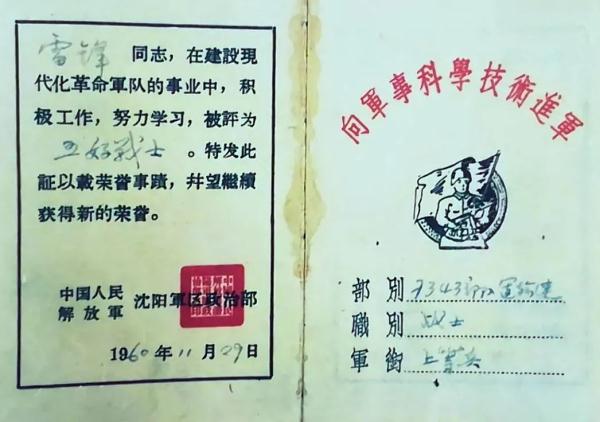 雷锋 同志，在建設現
代化革命軍队的事业中，积
极工作，努力学习，被評为
五好战士。特发此
証以載荣誉事蹟，幷望繼續
获得新的荣誉。
中国人民
解放軍 沈阳軍区政治部
1960年11月29日
向軍事科學技術進軍
部別 7343部队運输連
職別 战士
軍銜 上等兵